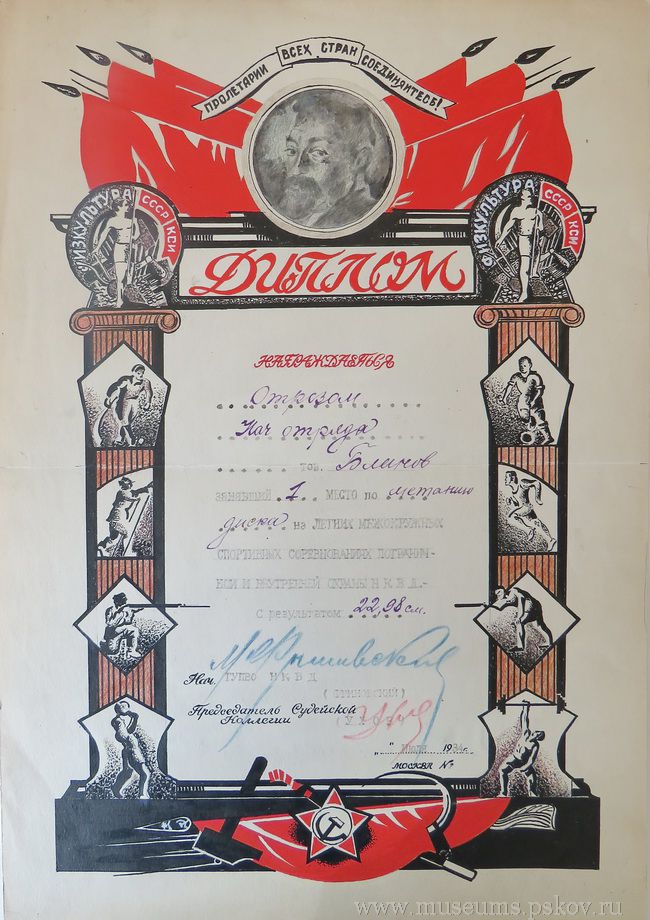 ПРОЛЕТАРИИ ВСЕХ СТРАН СОЕДИНЯЙТЕСЬ!
ФИЗКУЛЬТУРА СССР КСИ
ФИЗКУЛЬТУРА СССР КСИ
ДИПЛОМ
НАГРАЖДАЕТЬСЪ
Отрезом
Нач отряда
тов. Блинов
занявший 1 МЕСТО по метанию
диска на ЛЕТНИХ МЕЖОКРУЖНЫХ
СПОРТИВНЫХ СОРЕВНОВАНИЯХ ПОГРАНИЧ-
НОЙ И ВНУТРЕННЕЙ ОХРАНЫ Н К В Д.-
С результатом 22,98 см.
Нач. ГУПВО Н К В Д
Председатель Судейской
Коллегии
" " июля 193 г.
МОСКВА №
www.museums.pskov.ru